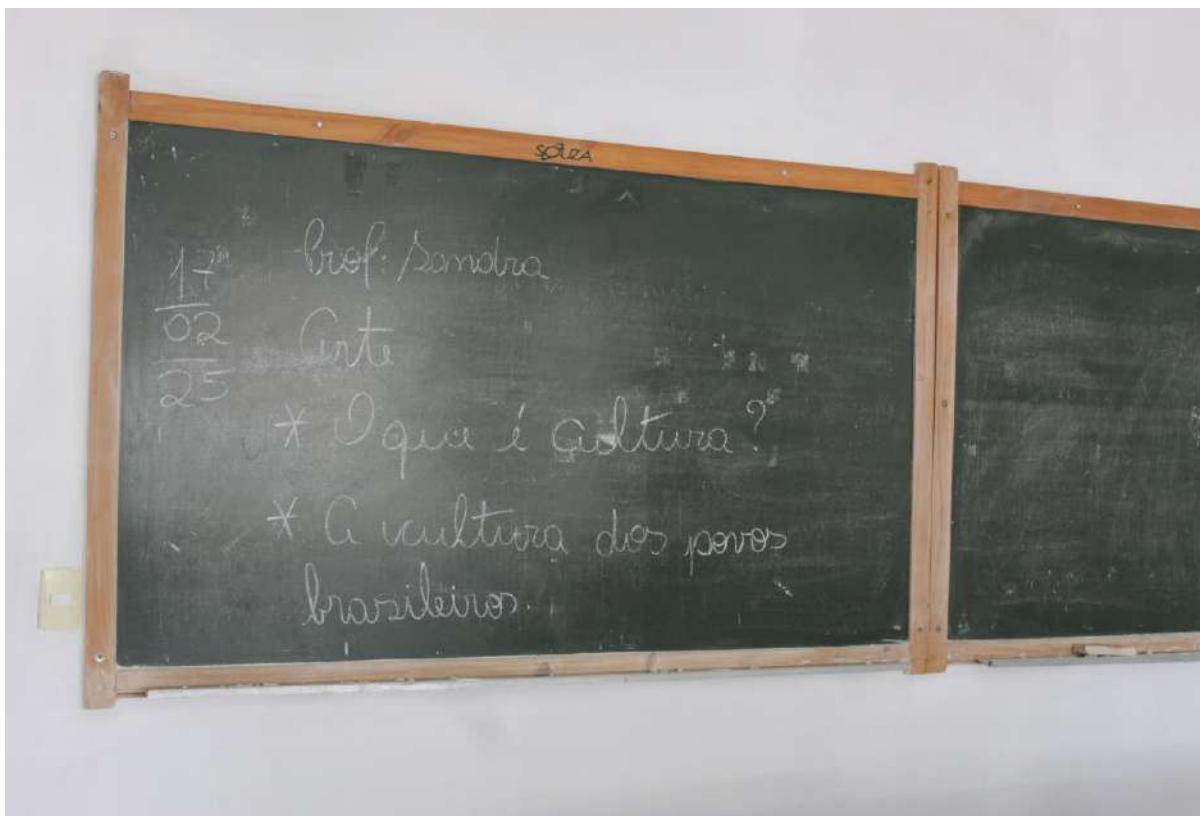 SOUZA
Prof: Sandra
17
02
25
Arte
* O que é cultura?
* A cultura dos povos
brasileiros.